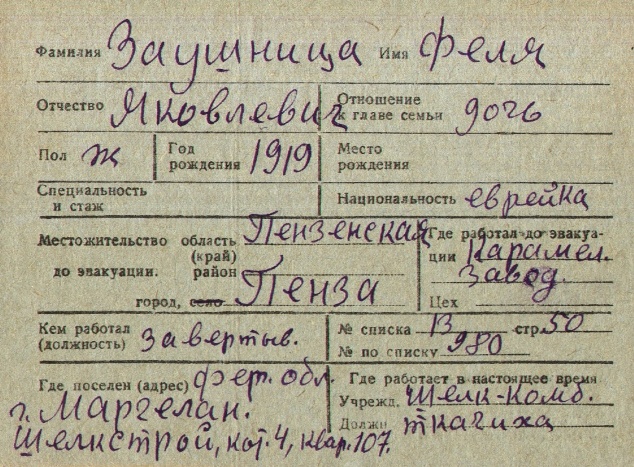 Фамилия Заушница Имя Феля
Отчество Яковлевич Отношение к главе семьи дочь
Пол ж Год рождения 1919 Место рождения
Специальность и стаж Национальность еврейка
Местожительство область (край) Пензенская
до эвакуации. район
город, село Пенза
Где работал до эвакуации Карамел. завод.
Цех
Кем работал (должность) завертыв.
№ списка 13 стр. 50
№ по списку 980
Где поселен (адрес) фер. обл.
г. Маргелан.
Шелкстрой, кот. 4, квар. 107.
Где работает в настоящее время
Учрежд. Шелк-Комб.
Должн ткачиха